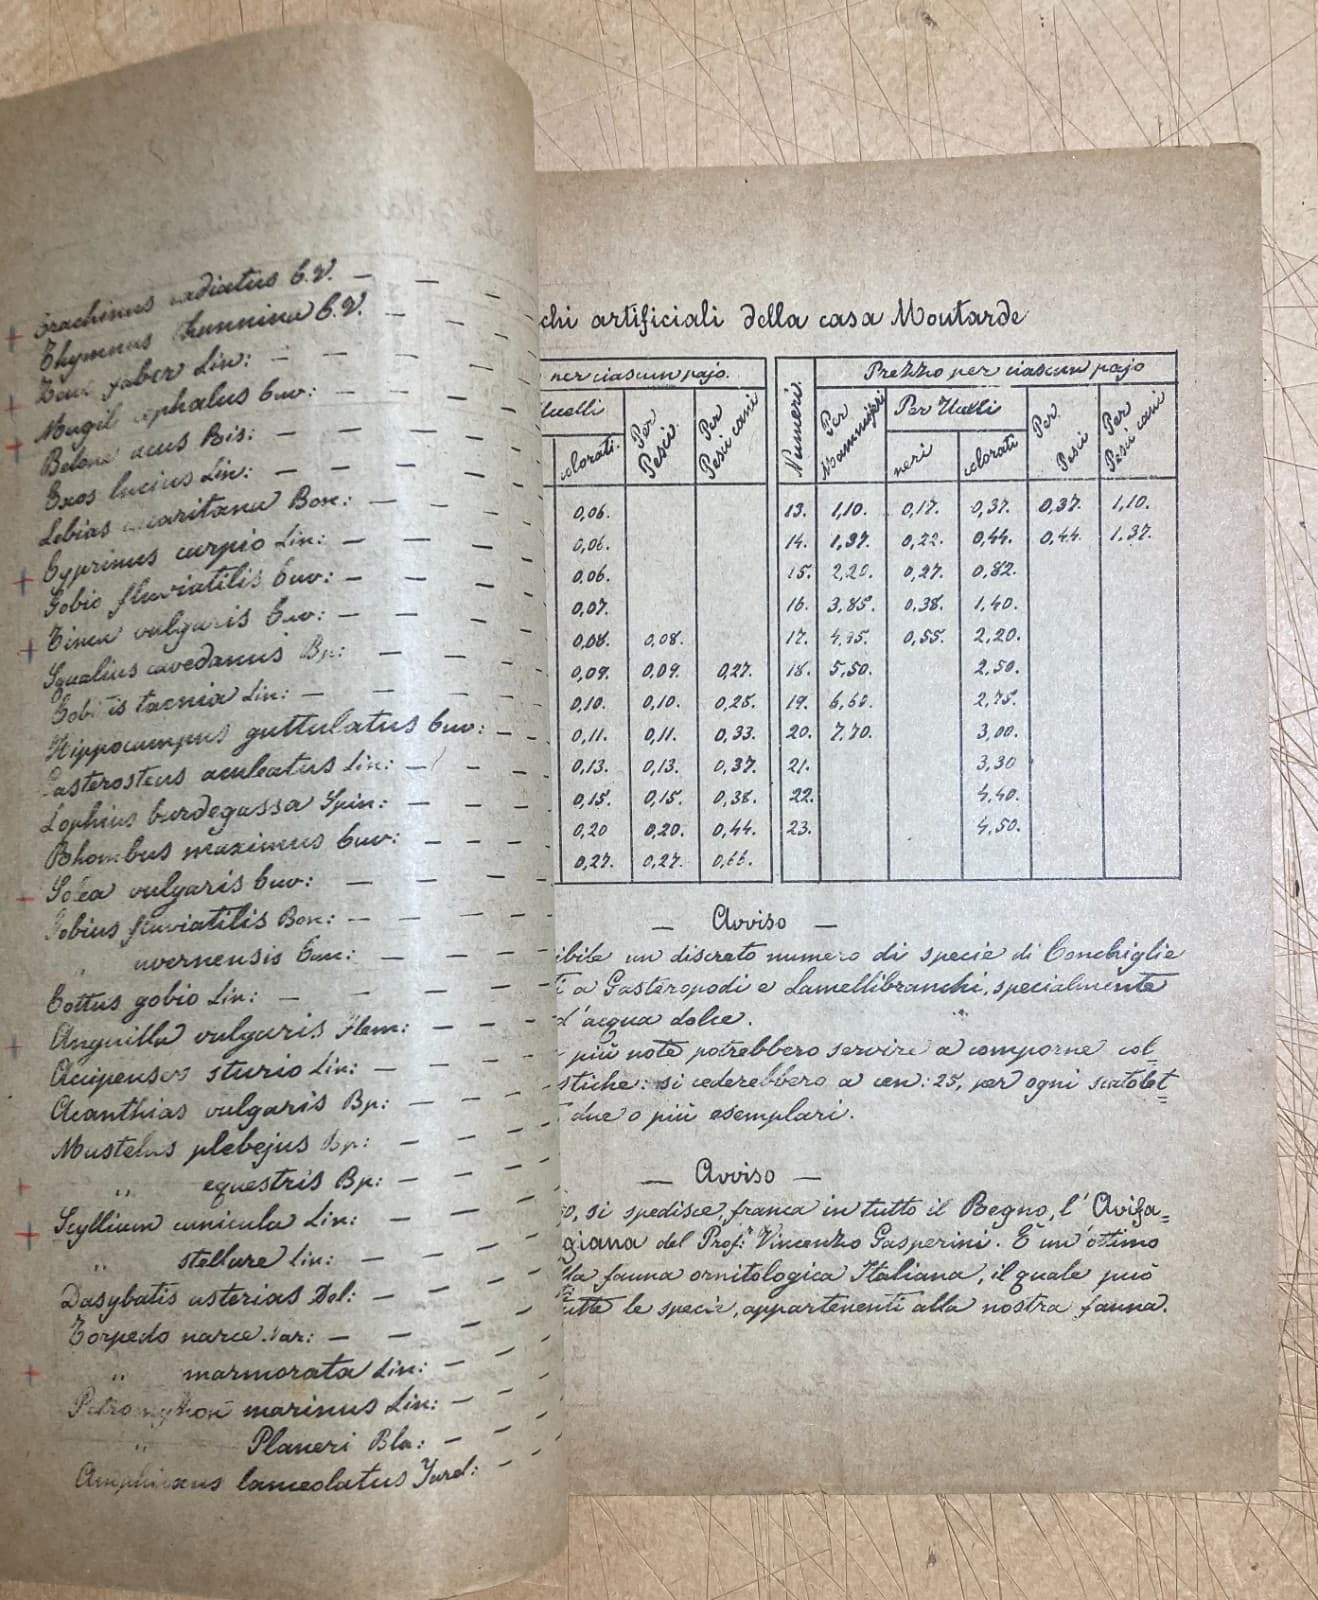 Trachinus radiatus C.V. — — —
Thymnus thunnina C.V. — — —
Zeus faber Lin: — — — —
Mugil cephalus Cuv: — — —
Belone acus Ris: — — — —
Exos lucius Lin: — — — —
Lebias Bon: — — —
Cyprinus carpio Lin: — — —
Gobio fluviatilis Cuv: — — —
Tinca vulgaris Cuv: — — —
Squalius cavedanus Bp: — — —
Cobitis taenia Lin: — — — —
Hippocampus guttulatus Cuv: — —
Gasterosteus aculeatus Lin: — — —
Lophius burdegassa Spin: — — —
Rhombus maximus Cuv: — — —
Solea vulgaris Cuv: — — — —
Gobius fluviatilis Bon: — — — —
„ avernensis Can: — — — —
Cottus gobio Lin: — — — —
Anguilla vulgaris Flem: — — —
Accipenser sturio Lin: — — —
Acanthias vulgaris Bp: — — —
Mustelus plebejus Bp: — — —
„ equestris Bp: — — —
Scyllium canicula Lin: — — —
„ stellare Lin: — — —
Dasybatis asterias Del: — — —
Torpedo narce — — —
„ marmorata Lin: — — —
Petromyhon marinus Lin: — — —
„ Planeri Bla: — —
Amphioxus lanceolatus Yarel: — —
chi artificiali della casa Moutarde
per ciascun pajo.
Uccelli
colorati.
Per Pesci.
Per Pesci cani
Numeri.
Prezzo per ciascun pajo
Per Mammiferi
Per Uccelli
neri
colorati
Per Pesci
Per Pesci cani
0,06. 13. 1,10. 0,17. 0,37. 0,37. 1,10.
0,06. 14. 1,37. 0,22. 0,44. 0,44. 1,37.
0,06. 15. 2,20. 0,27. 0,82.
0,07. 16. 3,85. 0,38. 1,40.
0,08. 0,08. 17. 4,95. 0,55. 2,20.
0,09. 0,09. 0,27. 18. 5,50. 2,50.
0,10. 0,10. 0,28. 19. 6,60. 2,75.
0,11. 0,11. 0,33. 20. 7,70. 3,00.
0,13. 0,13. 0,37. 21. 3,30
0,15. 0,15. 0,38. 22. 4,40.
0,20 0,20. 0,44. 23. 4,50.
0,27. 0,27. 0,66.
— Avviso —
ibile un discreto numero di specie di Conchiglie
ti a Gasteropodi e Lamellibranchi, specialmente
d'acqua dolce.
più note potrebbero servire a comporne col=
stiche: si cederebbero a cen: 25, per ogni scatolet=
due o più esemplari.
— Avviso —
si spedisce, franca in tutto il Regno, l'Avifa=
giana del Prof: Vincenzo Gasperini. È un'ottimo
lla fauna ornitologica Italiana, il quale può
tutte le specie, appartenenti alla nostra fauna.